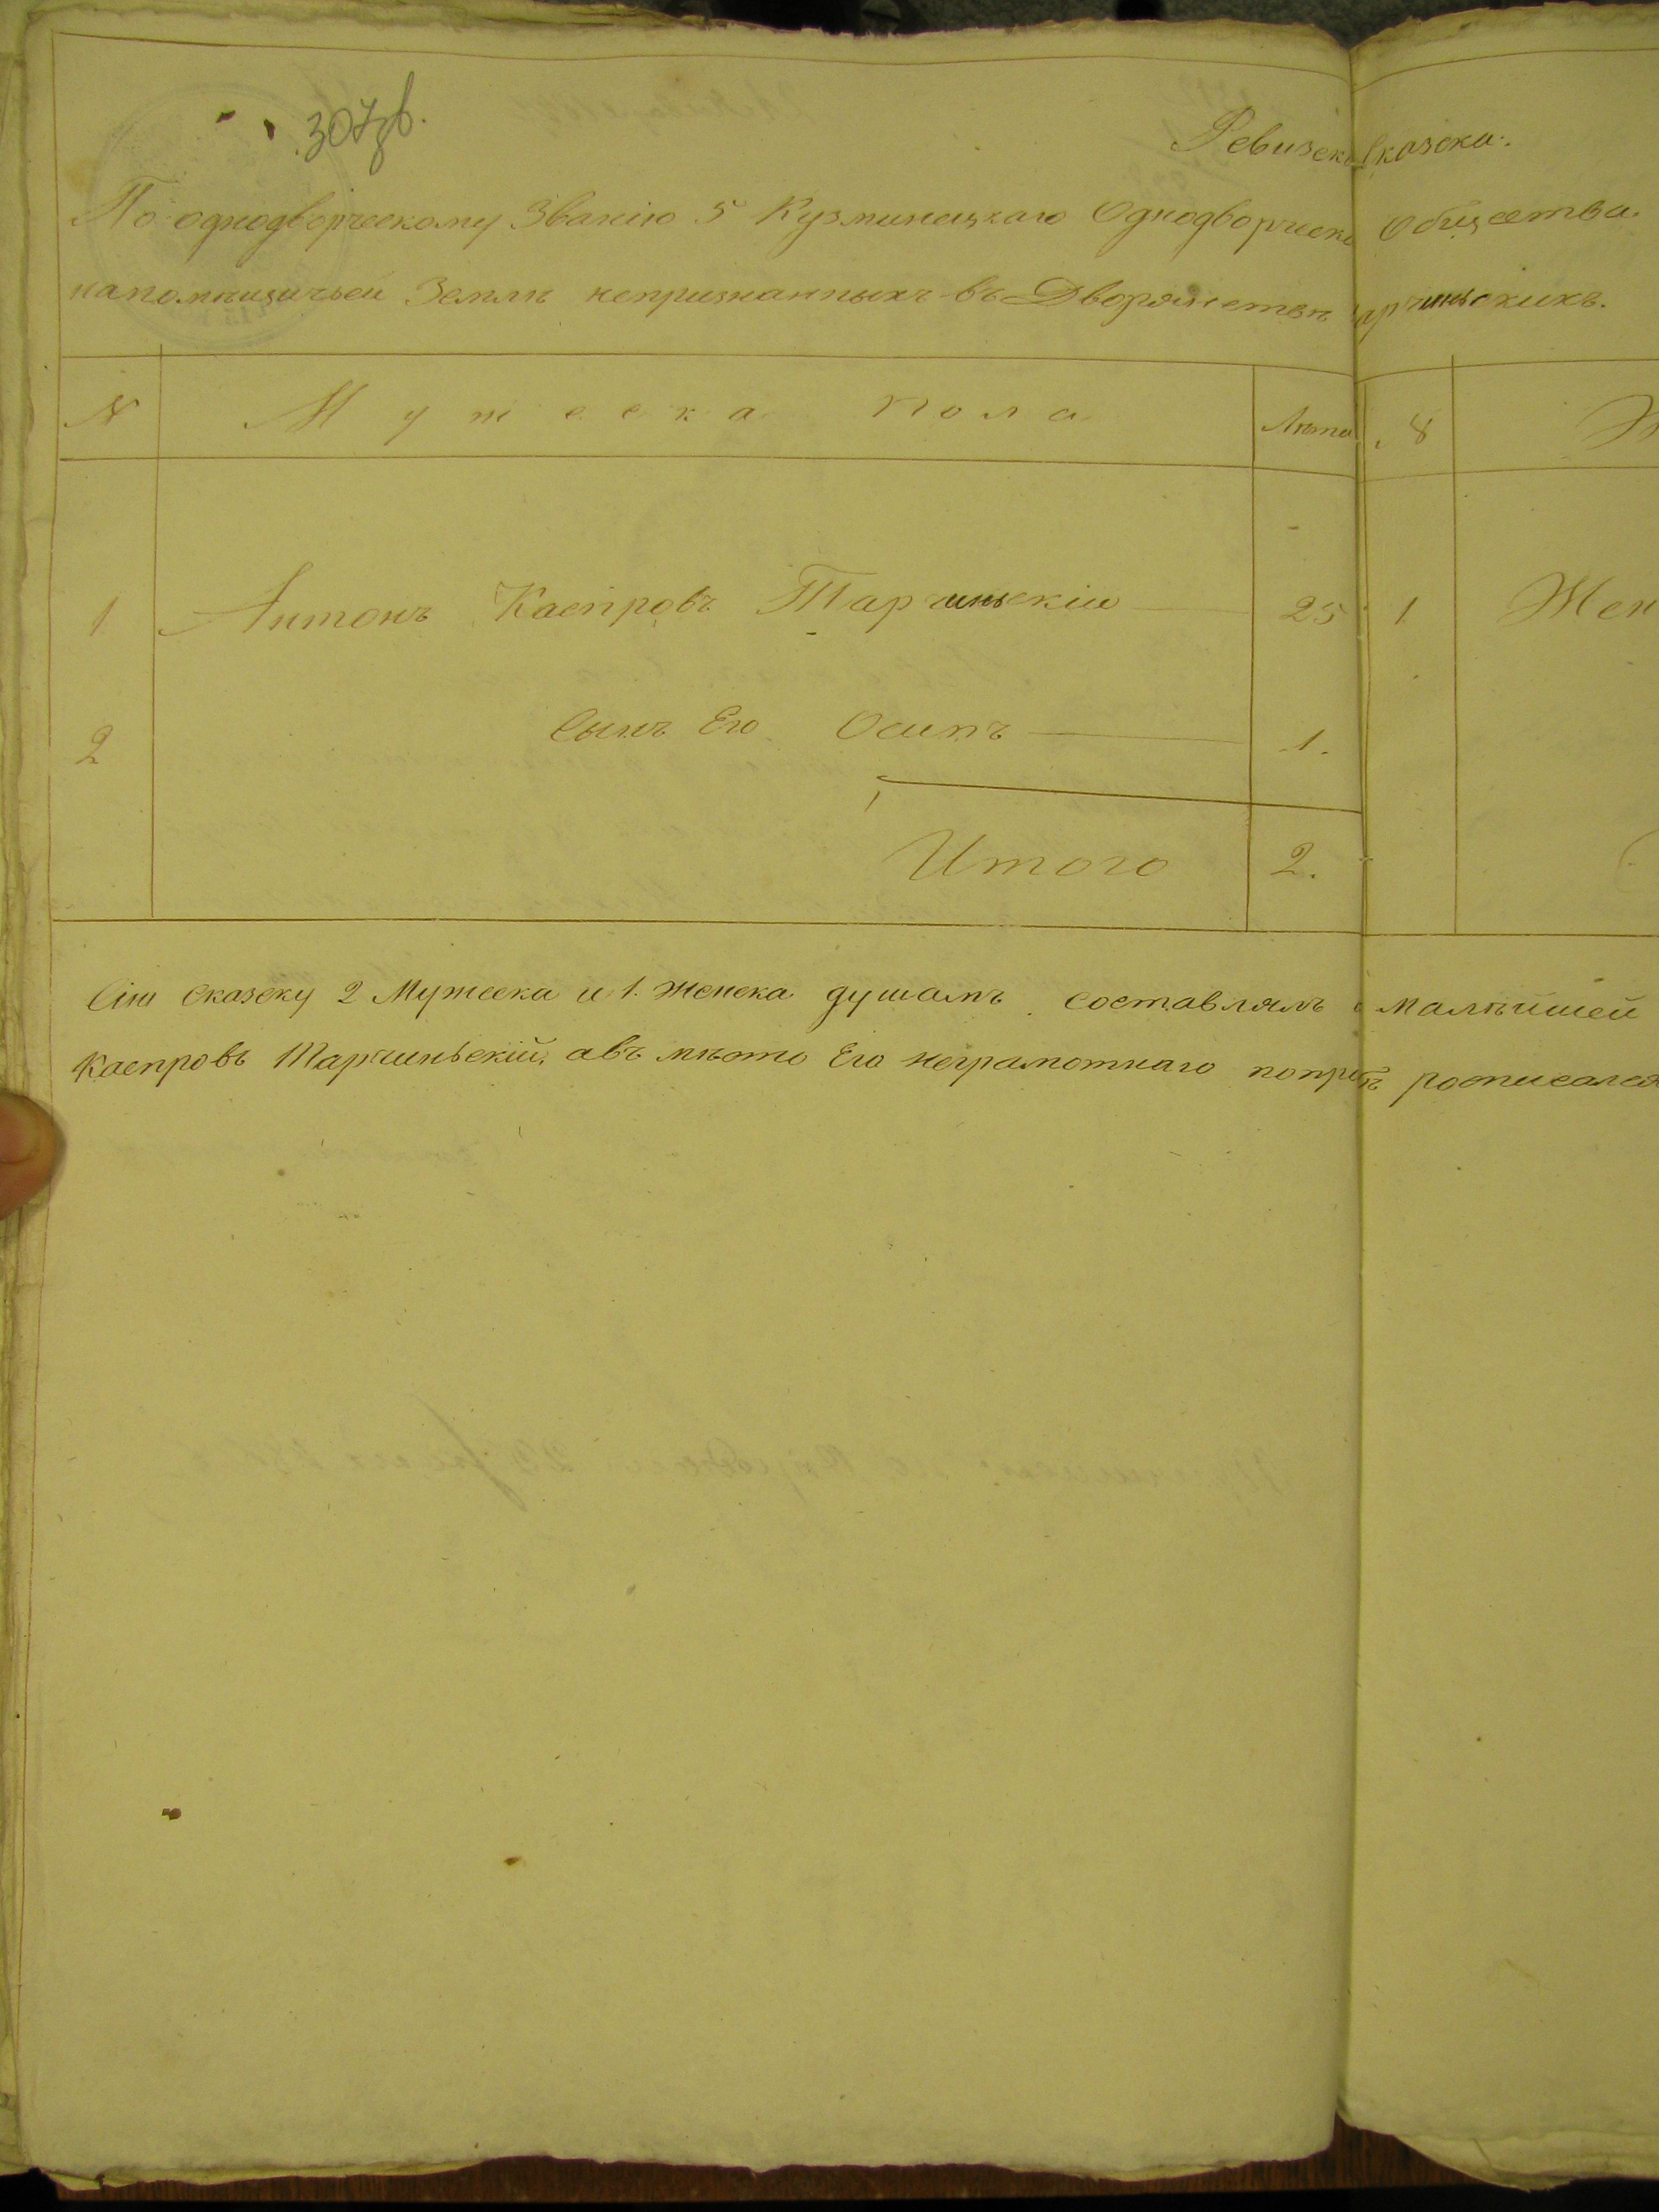 307об.
Ревизска Сказска.
По однодворческому Званію 5 Кузминецкаго Однодворческ Общества.
напомѣщичьей Землѣ непризнанныхъ въ Дворянствѣ Тарчиньскихъ.
N Мужеска пола Лѣта N
1 Антонъ Каспровъ Тарчиньскій 25 1 Жен
2 Сынъ Его Осипъ 1.
Итого 2.
Сію Сказску 2 Мужеска и 1. Женска душамъ Составлялъ малѣйшей
Каспровъ Тарчиньскій, авъ мѣсто Его неграмотнаго росписался